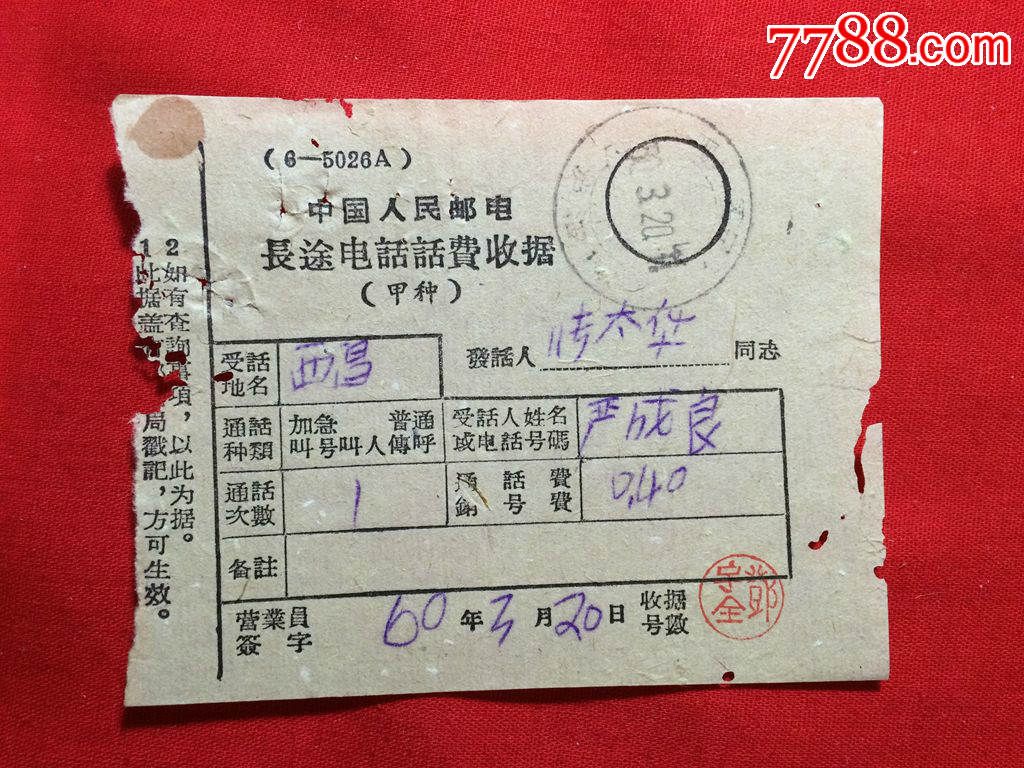 7788.com
(6—5026A)
中国人民邮电
長途电話話費收据
(甲种)
3.20
發話人 太 同志
受話地名 西昌
通話种類 加急 普通 叫号 叫人 傳呼
受話人姓名或电話号碼 严成良
通話次數 1
通話費 銷号費 0.40
备註
营業員簽字
60年3月20日
收据号數
1 此据盖 局戳記，方可生效。
2 如有查詢事項，以此为据。